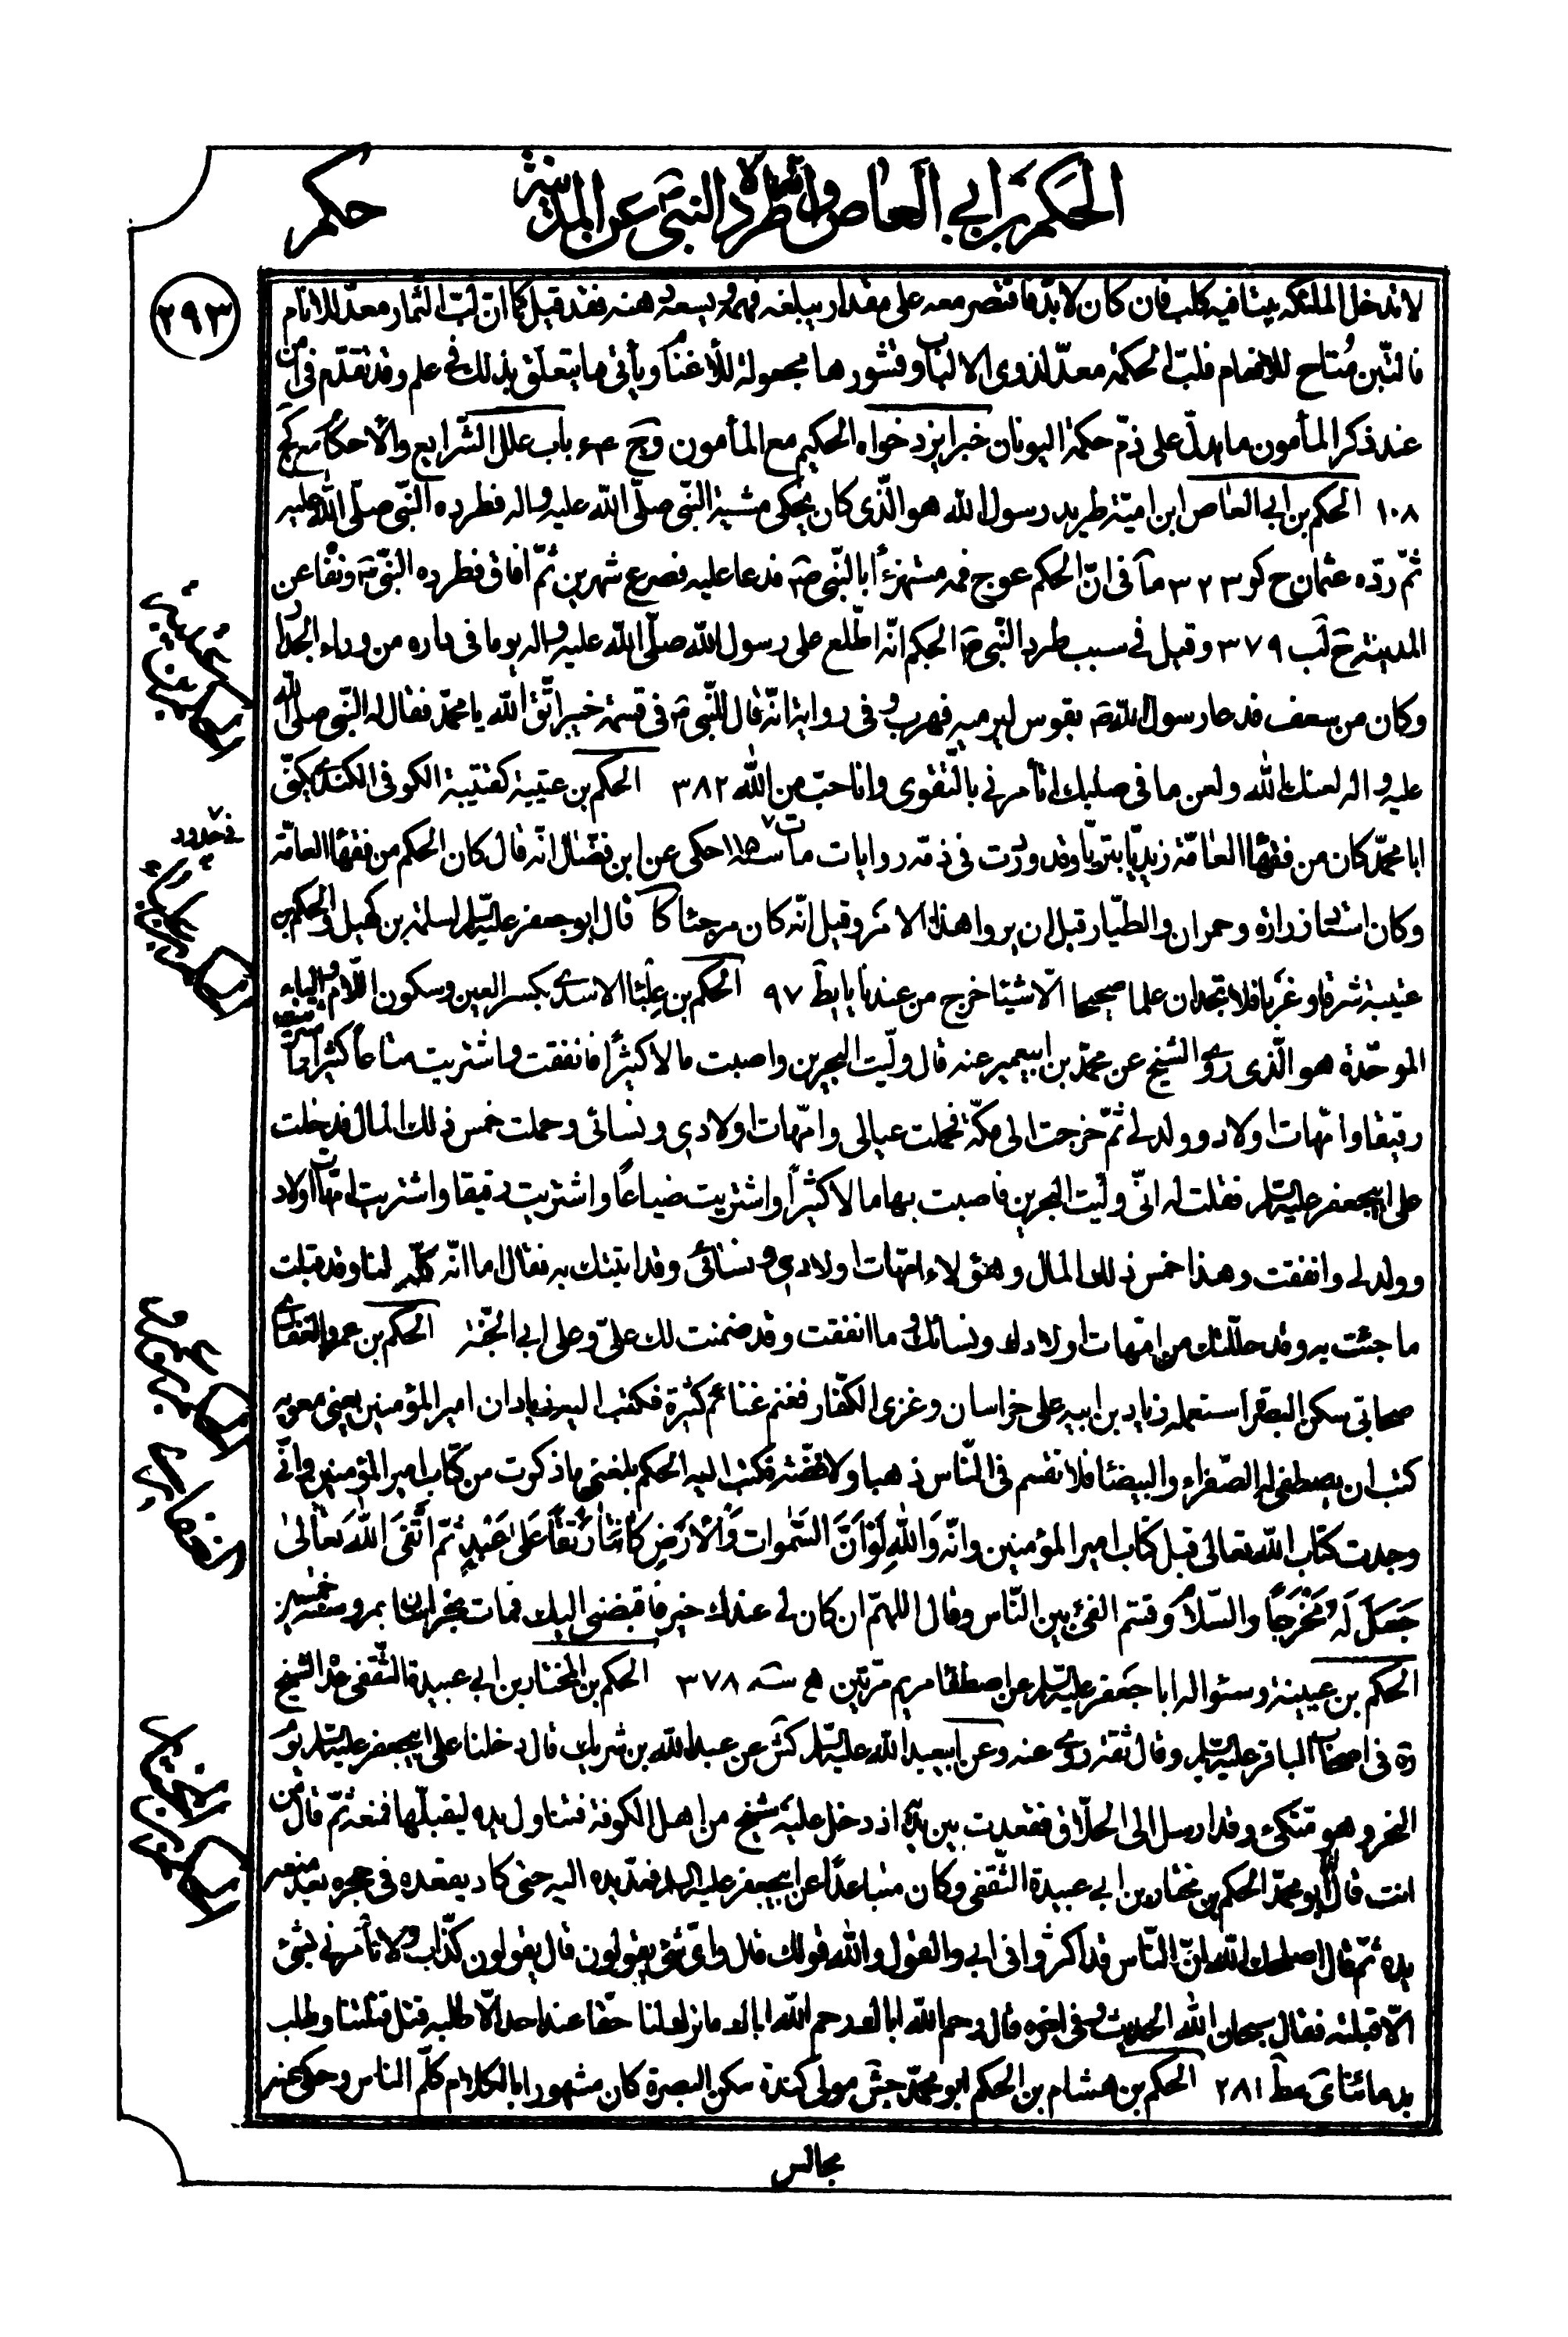 حكم
الحكم بن ابي العاص وانه طرده النبي عن المدينة
٢٩٣
لا تدخل الملئكة بيتا فيه كلب فان كان لا بد فاقتصر معه على مقدار يبلغه فهمه و يسعه ذهنه فقد قيل كما ان لب الثمار معد للانام
فالتبن متاح للانعام فلب الحكمة معد لذوي الالباب وقشورها مجعولة للأغنام ويأتي ما يتعلق بذلك في علم وقد تقدم في امن
عند ذكر المأمون ما يدل على ذم حكمة اليونان خبر ايزد خواه الحكيم مع المأمون و ج باب علل الشرايع والاحكام
١٠٨ الحكم بن ابي العاص ابن امية طريد رسول الله هو الذي كان يحكي مشية النبي صلى الله عليه واله فطرده النبي صلى الله عليه
ثم رده عثمان ح كو ٣٢٣ ما في ان الحكم عوج فمه مستهزءا بالنبي ص فدعا عليه فصرع شهرين ثم افاق فطرده النبي ص ونفاه عن
المدينة ح لب ٣٧٩ وقيل في سبب طرد النبي ص الحكم انه اطلع على رسول الله صلى الله عليه واله يوما في داره من وراء الجدار
وكان من سعف فدعا رسول الله ص بقوس ليرميه فهرب و في رواية انه قال للنبي ص في قسمة خيبر اتق الله يا محمد فقال له النبي صلى الله
عليه واله لعنك الله ولعن ما في صلبك اتأمرني بالتقوى وانا جئت من الله ٣٨٢ الحكم بن عتيبة كقتيبة الكوفي الكندي يكنى
ابا محمد كان من فقهاء العامة زيديا بتريا وقد وردت في ذمه روايات مات سنة ١١٥ حكي عن ابن فضال انه قال كان الحكم من فقهاء العامة
وكان استاد زرارة وحمران والطيار قبل ان يروا هذا الامر وقيل انه كان مرجئا كا قال ابو جعفر عليه السلام لسلمة بن كهيل والحكم بن
عتيبة شرقا وغربا فلا تجدان علما صحيحا الا شيئا خرج من عندنا يا بط ٩٧ الحكم بن علباء الاسدي بكسر العين وسكون اللام والباء
الموحدة هو الذي روى الشيخ عن محمد بن ابي عمير عنه قال وليت البحرين واصبت مالا كثيرا فانفقت واشتريت متاعا كثيرا واشتريت
رقيقا وامهات اولاد وولد لي ثم خرجت الى مكة فحملت عيالي وامهات اولادي ونسائي وحملت خمس ذلك المال فدخلت
على ابي جعفر عليه السلام فقلت له اني وليت البحرين فاصبت بها مالا كثيرا واشتريت ضياعا واشتريت رقيقا واشتريت امهات اولاد
وولد لي وانفقت وهذا خمس ذلك المال وهؤلاء امهات اولادي و نسائي وقد اتيتك به فقال اما انه كله لنا وقد قبلت
ما جئت به وقد حللتك من امهات اولادك ونسائك و ما انفقت وقد ضمنت لك علي وعلى ابي الجنة الحكم بن عمرو الغفاري
صحابي سكن البصرة استعمله زياد بن ابيه على خراسان وغزى الكفار فغنم غنائم كثيرة فكتب اليه زياد ان امير المؤمنين يعني معوية
كتب ان يصطفى له الصفراء والبيضاء فلا تقسم في الناس ذهبا ولا فضة فكتب اليه الحكم بلغني ما ذكرت من كتاب امير المؤمنين واني
وجدت كتاب الله تعالى قبل كتاب امير المؤمنين وانه والله لو ان السموات والارض كانتا رتقا على عبد ثم اتقى الله تعالى
جعل له مخرجا والسلام وقسم الفئ بين الناس وقال اللهم ان كان لي عندك خير فاقبضني اليك فمات بخراسان بمرو سنة خمسين
الحكم بن عيينة وسئواله ابا جعفر عليه السلام عن اصطفاء مريم مرتين ه سه ٣٧٨ الحكم بن المختار بن ابي عبيدة الثقفي عده الشيخ
ره في اصحاب الباقر عليه السلام وقال ثقة روى عنه وعن ابي عبد الله عليه السلام كش عن عبد الله بن شريك قال دخلنا على ابي جعفر عليه السلام يوم
النحر وهو متكئ وقد ارسل الى الحلاق فقعدت بين يديه اذ دخل عليه شيخ من اهل الكوفة فتناول يده ليقبلها فمنعه ثم قال من
انت قال ابو محمد الحكم بن مختار بن ابي عبيدة الثقفي وكان متباعدا عن ابي جعفر عليه السلام فمد يده اليه حتى كاد يقعده في حجره بعد منعه
يده ثم قال اصلحك الله ان الناس قد اكثروا في ابي والقول والله قولك قال واي شئ يقولون قال يقولون كذاب و لا تأمرني بشئ
الا قبلته فقال سبحان الله الحديث و في اخره قال رحم الله اباك رحم الله اباك ما ترك لنا حقا عند احد الا طلبه قتل قتلتنا وطلب
بدمائنا ي مط ٢٨١ الحكم بن هشام بن الحكم ابو محمد جش مولى كندة سكن البصرة كان مشهورا بالكلام كلم الناس وحكي عنه
مجالس